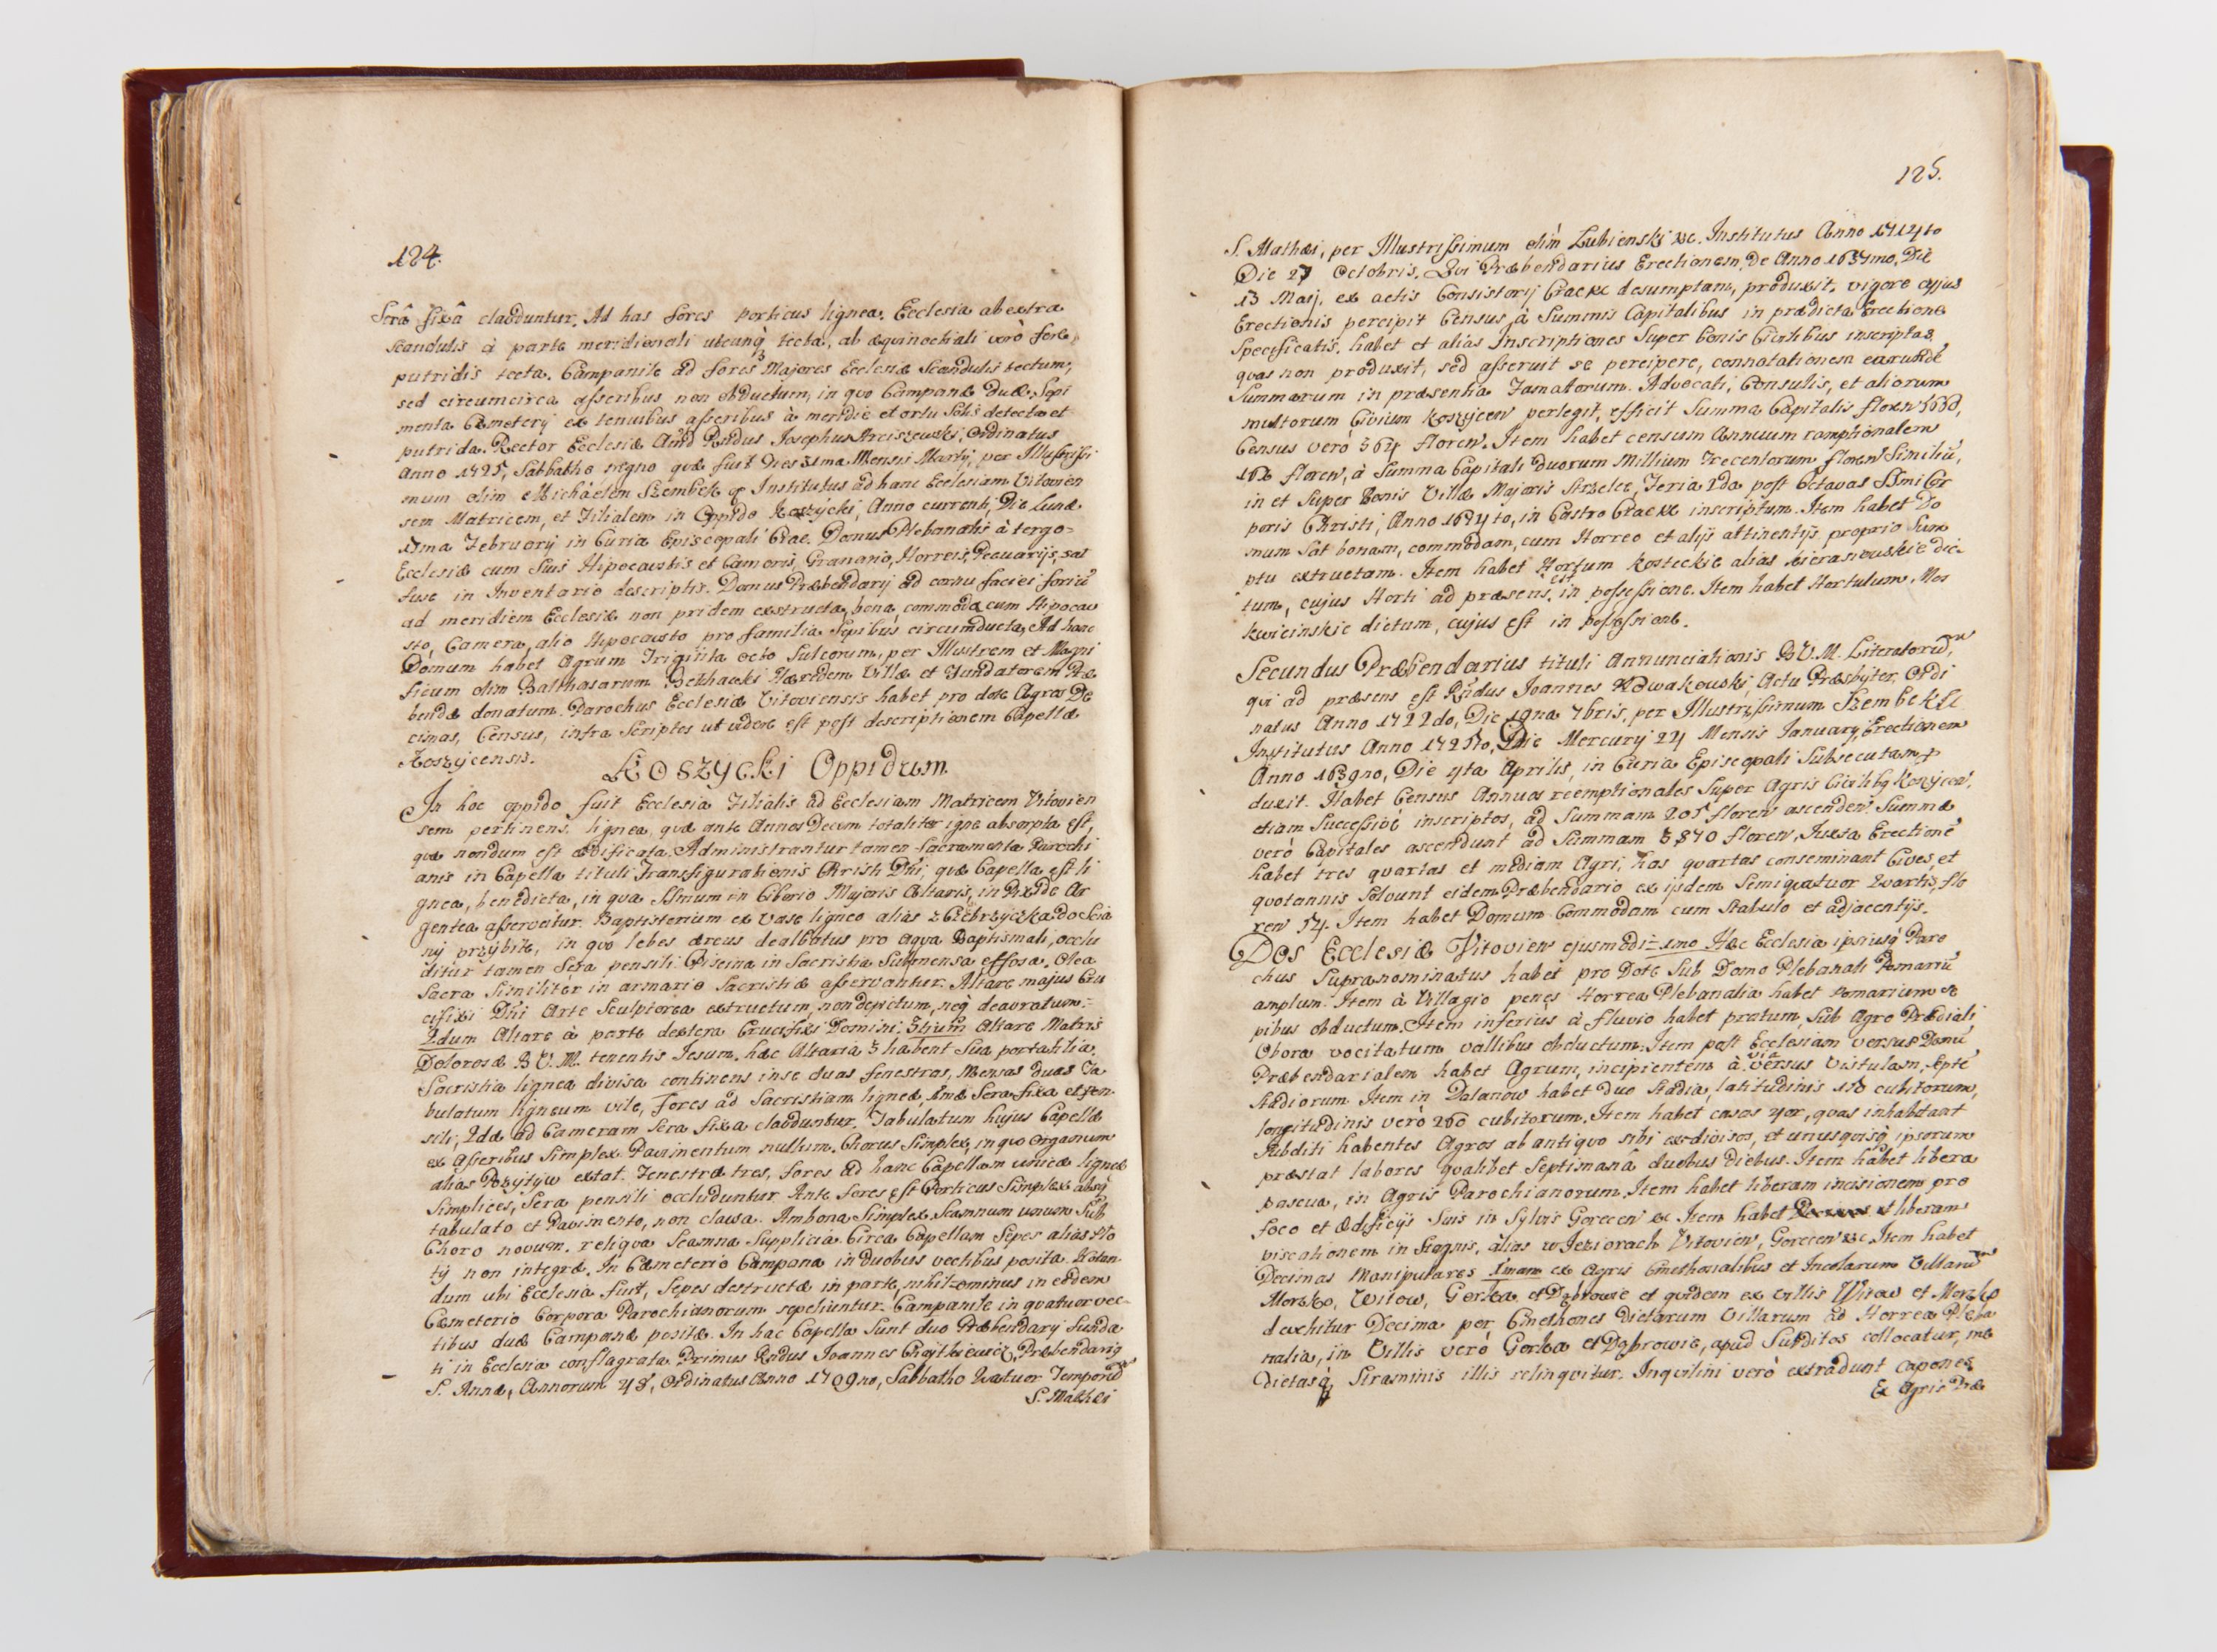 124.
Serâ fixâ clauduntur. Ad has fores porticus lignea. Ecclesia ab extra
scandulis à parte meridionali utcunq̃ tecta, ab æquinoctiali verò fere
putridis tecta. Campanile ad fores Majores Ecclesiæ Scandulis tectum,
sed circumcirca asseribus non obductum, in quo Campanæ duæ, Sepi
menta Cæmeterij ex tenuibus asseribus à meridie et ortu Solis detecta et
putrida. Rector Ecclesiæ Añd Rñdus Josephus Arciszewski, Ordinatus
Anno 1725, Sabbatho magno quæ fuit Dies 31ma Mensis Martij, per Illustrissi
mum olim Michàelem Szembek Institutus ad hanc Ecclesiam Vitovien
sem Matricem, et Filialem in Oppido Koszycki, Anno currenti, Die Lunæ
17ma February in Curia Episcopali Crac. Domus Plebanalis à tergo
Ecclesiæ cum suis Hipocaustis et Cameris, Granario, Horreis, Pecuarijs, sat
fuse in Inventario descriptis. Domus Præbendarij ad cornu faciei foriũ
ad meridiem Ecclesiæ non pridem exstructa, bona, commoda cum Hipocau
sto, Camera, alio Hipocausto pro familia Sepibus circumducta, Ad hanc
Domum habet Agrum Triginta octo Sulcorum, per Illustrem et Magni
ficum olim Balthasarum Hæredem Villæ et Fundatorem Præ
bendæ donatum. Parochus Ecclesiæ Vitoviensis habet pro dote Agros De
cimas, Census, infra Scriptos ut videre est post descriptionem Capellæ
Koszycensis.
Koszycki Oppidum
In hoc oppido fuit Ecclesia Filialis ad Ecclesiam Matricem Vitovien
sem pertinens, lignea, quæ ante Annos Decem totaliter igne absorpta est,
quæ nondum est ædificata. Administrantur tamen Sacramenta Parochi
anis in Capella tituli Transfigurationis Christi Dñi, quæ Capella est li
gnea, benedicta, in qua SSmum in Ciborio Majoris Altaris, in Pixide Ar
gentea asservatur. Baptisterium ex Vase ligneo alias z Czebrzyczka do Scia
ny przybite, in quo lebes æreus dealbatus pro aqva Baptismali, occlu
ditur tamen Sera pensili. Piscina in Sacristia Submensa effosa. Olea
Sacra Similiter in armario Sacristiæ asservantur. Altare majus Cru
cifixi Dñi Arte Sculptorea extructum, non depictum, neq̃ deavratum.
2dum Altare à parte dextera Crucifixi Domini. 3tium Altare Matris
Dolorosæ B.V.M. tenentis Jesum. hæc Altaria 3 habent Sua portatilia.
Sacristia lignea divisa continens in se duas fenestras, Mensas duas Ta
bulatum ligneum vile, Fores ad Sacristiam ligneæ, 1mæ Sera fixa et pen
sili, 2dæ ad Cameram Sera fixa clauduntur. Tabulatum hujus Capellæ
ex Asseribus simplex. Pavimentum nullum. Chorus Simplex, in quo Organum
alias Pozytyw extat. Fenestræ tres, fores ad hanc Capellam unicæ ligneæ
Simplices, Sera pensili occluduntur. Ante fores est Porticus Simplex absq̃
tabulato et Pavimento, non clausa. Ambona Simplex. Scamnum unum Sub
Choro novum. reliqva Scamna Supplicia. Circa Capellam Sepes alias Plo
ty non integræ. In Cæmeterio Campana in duobus vectibus posita. Notan
dum ubi Ecclesia fuit, Sepes destructæ in parte, nihilominus in eodem
Cæmeterio Corpora Parochianorum sepeliuntur. Campanile in qvatuor vec
tibus duæ Campanæ positæ. In hac Capella Sunt duo Præbendarij funda
ti in Ecclesia conflagrata. Primus Rndus Joannes Præbendarig
S. Annæ, Annorum 48, Ordinatus Anno 1709no, Sabbatho Qvatuor Temporũ
S. Mathæi
125.
S. Mathæi, per Illustrissimum olim Lubienski &c. Institutus Anno 1714to
Die 27 Octobris. Qvi Præbendarius Erectionem, de Anno 1637mo, Die
13 Maij, ex actis Consistorij desumptam, produxit, vigore cujus
Erectionis percipit Census à Summis Capitalibus in prædicta Erectione
Specificatis. habet et alias Inscriptiones Super bonis Civilibus inscriptas,
quas non produxit, sed asseruit se percipere, connotationem earundẽ
Summarum in præsentia Famatorum. Advocati, Consulis, et aliorum
multorum Civium Koszycen perlegit, efficit Summa Capitalis floren
Census verò 364 floren. Item habet censum Annuum reemptionalem
floren, à Summa Capitali duorum Millium Trecentorum floren Similiũ,
in et Super Bonis Villæ Majoris Strzelce, Feria 2da post Octavas SSmi Cor
poris Christi, Anno 1674to, in Castro inscriptum. Item habet Do
mum Sat bonam, commodam, cum Horreo et alijs attinentijs, proprio Sum
ptu extructam. Item habet Hortum Kosteckie alias Sieranowskie dic
tum, cujus Horti ad præsens est in possessione. Item habet Hortulum, Mos
kwicinskie dictum, cujus est in possessione.
Secundus Præbendarius tituli Annunciationis B.V.M. Literatorũ,
qvi ad præsens est Rñdus Joannes Nowakowski, Actu Præsbyter, Ordi
natus Anno 1722do, Die 19na 7bris, per Illustrissimum Szembek &c
Institutus Anno 1725to, Die Mercurij 24 Mensis January, Erectionem
Anno 1639no, Die 4ta Aprilis, in Curia Episcopali Subsecutam p
duxit. Habet Census Annuos reemptionales Super Agris Civilibq Koszycen,
etiam Successivè inscriptos, ad Summam 205 floren ascenden. Summæ
verò Capitales ascendunt ad Summam 3,870 floren, Juxta Erectionẽ
habet tres quartas et mediam Agri, has qvartas conseminant Cives, et
quotannis Solvunt eidem Præbendario ex ijsdem Semiqvatuor Qvartis, flo
ren 54. Item habet Domum Commodam cum Stabulo et adjacentijs.
Dos Ecclesiæ Vitovien ejusmodi: 1mo Hæc Ecclesia ipsiusq̃ Paro
chus Supranominatus habet pro Dote Sub Domo Plebanali Pomariũ
amplum. Item à Villagio penes Horrea Plebanalia habet Pomarium Se
pibus obductum. Item inferius à fluvio habet pratum, Sub Agro Prædiali
Obora vocitatum vallibus obductum. Item post Ecclesiam versus Domũ
Præbendarialem habet Agrum, incipientem à via versus Vistulam, Septẽ
Stadiorum. Item in Dalanow habet duo Stadia, latitudinis 150 cubitorum,
longitudinis verò 260 cubitorum. Item habet casas 4or, quas inhabitant
Subditi habentes Agros ab antiquo sibi exdivisos, et unusqvisq̃ ipsorum
præstat labores qvalibet Septimanâ duobus diebus. Item habet libera
pascua, in Agris Parochianorum. Item habet liberam incisionem pro
foco et ædificijs Suis in Sylvis Gorecen &c Item habet liberam
piscationem in Stagnis, alias w Jeziorach Vitovien, Gorecen &c. Item habet
Decimas Manipulares 1mam ex Agris Cmethonalibus et Incolarum Villarũ
Morsko, Witow, Gorka et Dąbrowie et qvidem ex Villis Witow et Morsko
devehitur Decima per Cmethones dictarum Villarum ad Horrea Pleba
nalia, in Villis verò Gorka et Dąbrowie, apud Subditos collocatur, me
dietasq̃ Straminis illis relinqvitur. Inqvilini verò extradunt Capones
Ex Agris Præ